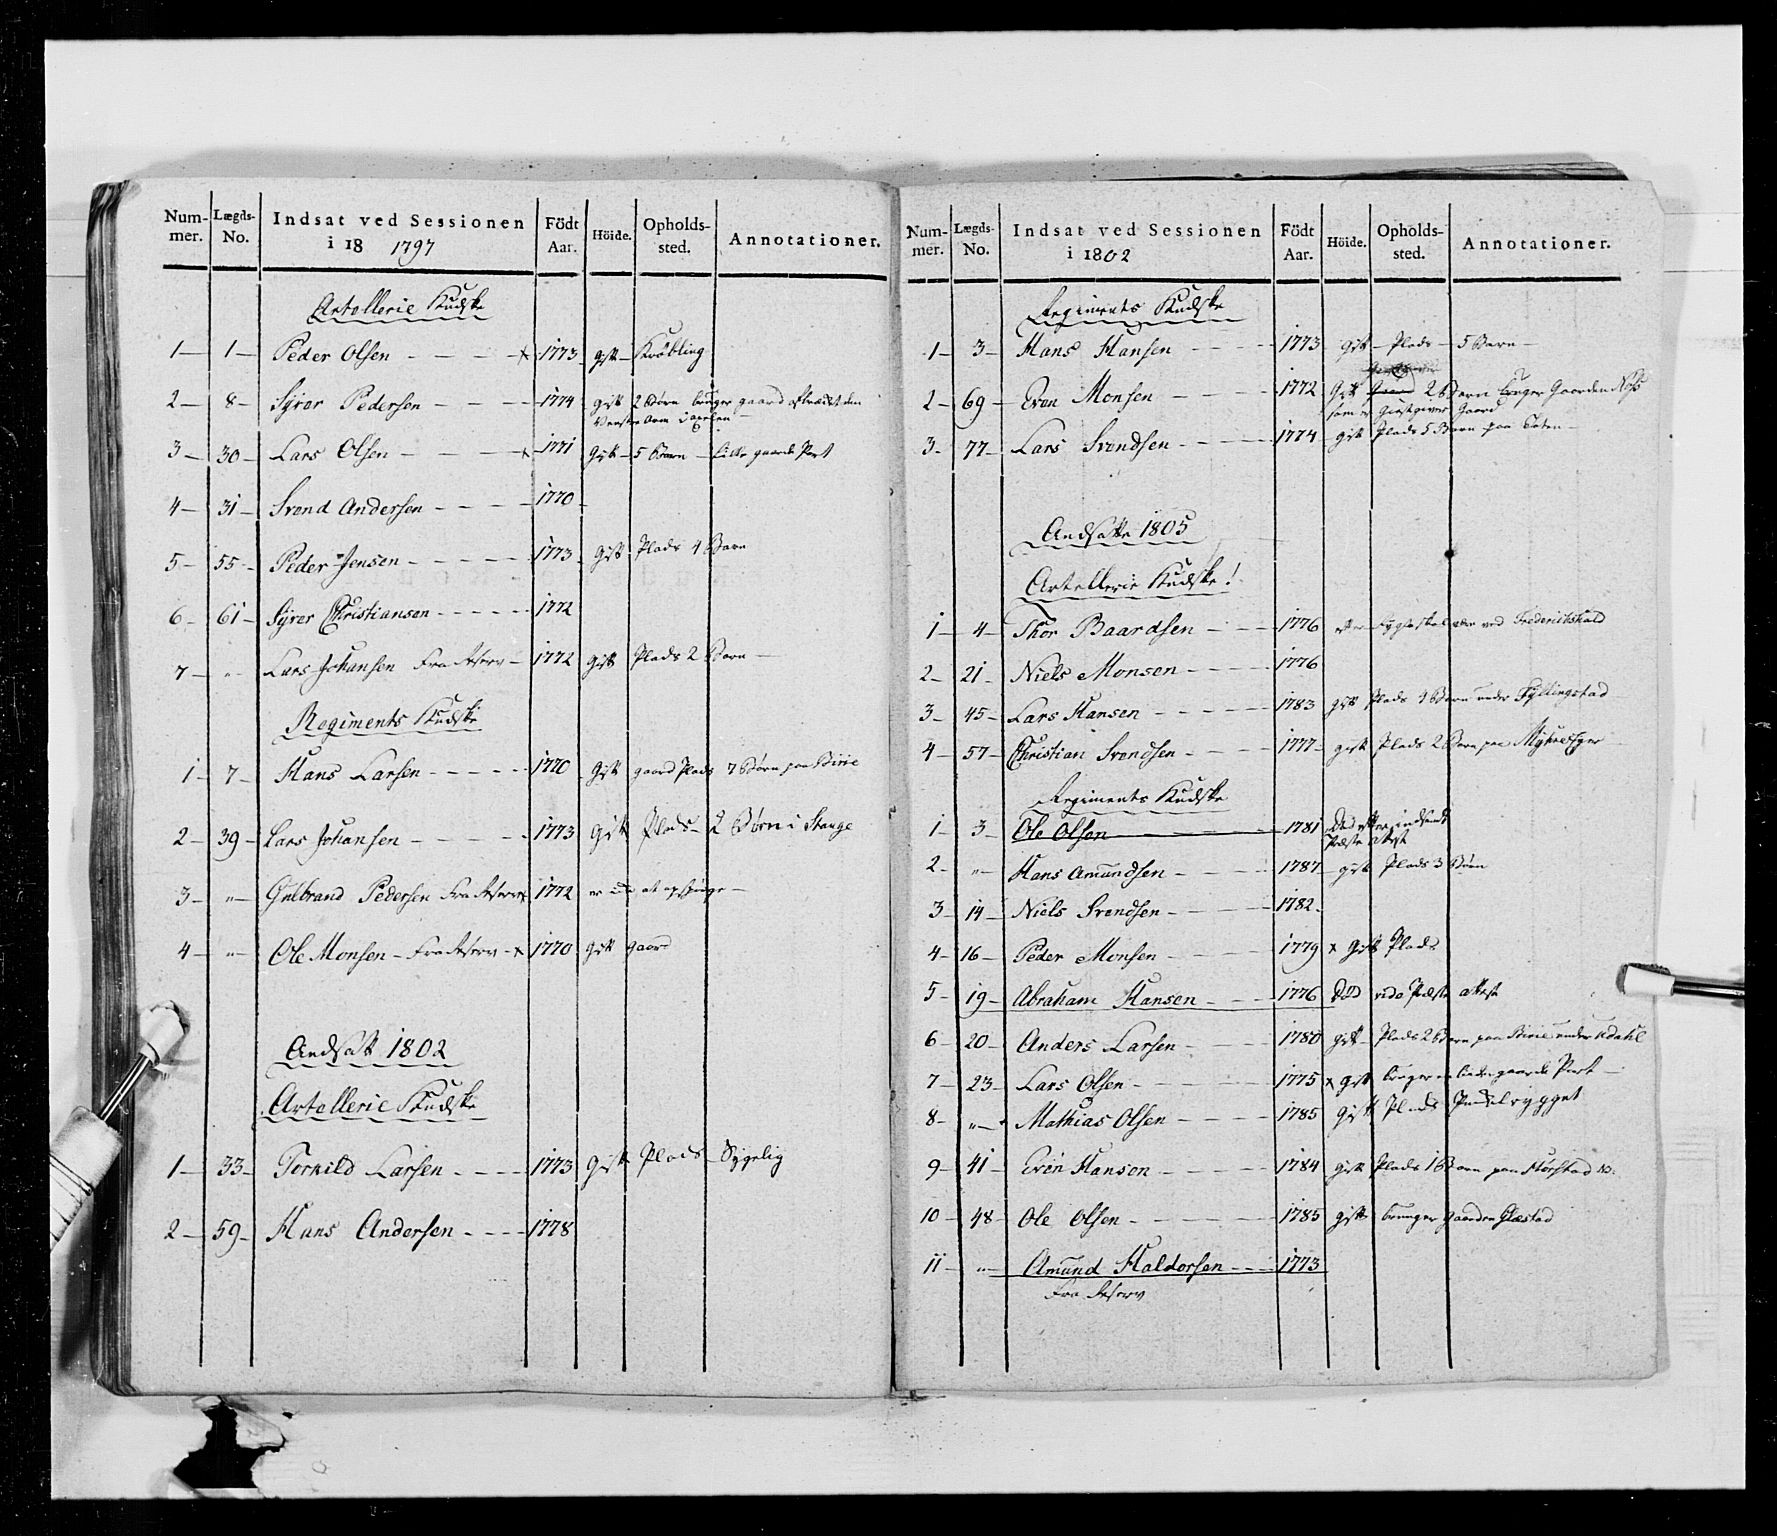 Num-mer. Lægds-No. Indsat ved Sessionen i 18 1797 Födt Aar. Höide. Opholds-sted. Annotationer.
Artollerie Kudske
1 — 1 — Peder Olsen - - - x 1773 gift - Kröbling
2 — 8 — Syver Pedersen - - - 1774 gift 2 Börn bruger gaard den
Venstre Arm
3 — 30 — Lars Olsen - - - x 1771 Gift - 5 Börn - lidte gaarde Part
4 — 31 — Svend Andersen - - - - 1770 -
5 — 55 - Peder Jensen - - - - 1773 Gift Plads 4 Børn
6 - 61 - Syver Christiansen - - - - - 1772
7 — " - Lars Johansen Fra Reserv - 1772 Gift Plads 2 Børn —
Regiments Kudske
1 - 7 - Hans Larsen - - - - - 1770 Gift gaard Plads 7 Börn paa Birie
2 — 39 - Lars Johansen - - - - 1773 Gift Plads - 2 Börn i Stange
3 - " — Gulbrand Pedersen Fra Reserv x 1772 er at opspörge —
4 — " — Ole Monsen - Fra Reserv - x 1770 Gift gaard
Andsatt 1802
Artollerie Kudske
1 — 33 - Torkild Larsen - - - - 1773 Gift Plads - Sygelig
2 — 59 - Hans Andersen - - - - 1778
Num-mer. Lægds-No. Indsat ved Sessionen i 1802 Födt Aar. Höide. Opholds-sted. Annotationer.
Regiments Kudske
1 - 3 - Hans Hansen - - - - 1773 gift - Plads - 5 Børn -
2 - 69 - Even Monsen - - - - 1772 Gift 2 Børn bruger Gaarden
som er Giestgiver Gaard
3 - 77 - Lars Svendsen - - - - 1774 - gift Plads 5 Børn paa Toten -
Andsatte 1805
Artellerie Kudske!
1 - 4 - Thor Baardsen - - - 1776 ved Frederikshald
2 - 21 - Niels Monsen - - - - 1776
3 - 45 - Lars Hansen - - - - - 1783 gift Plads 4 Børn under Hyllingstad
4 - 57 - Christian Svendsen - - - - 1777 - gift Plads 2 Børn paa
Regiments Kudske
1 - 3 - Ole Olsen 1781 Död efter indsendt
Præste Attest
2 - " - Hans Amundsen - - - - 1787 - gift Plads 3 Börn
3 - 14 - Niels Svendsen - - - - 1782 -
4 - 16 - Peder Monsen - - - - 1779 x Gift Plads
5 - 19 - Abraham Hansen - - - 1776 Död vide Præste attest
6 - 20 - Anders Larsen - - - 1780 gift - Plads 2 Børn paa Birie under
7 - 23 - Lars Olsen - - - - - 1775 x gift bruger en liden gaarde Part —
8 - " - Mathias Olsen - - - - 1785 Gift Plads
9 - 41 - Even Hansen - - - - 1784 gift Plads 1 Barn paa
10 - 48 - Ole Olsen - - - - - 1785 gift bruuger gaarden
11 - " - Amund Haldorsen - - - 1773
Fra Reserv